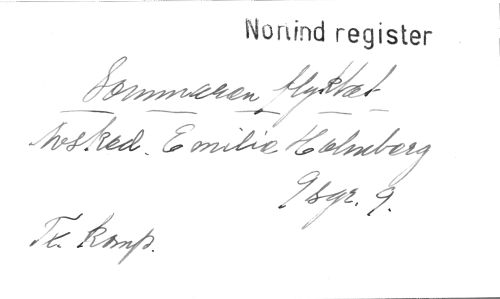 Nortind register
Sommaren flyktat
Avsked. Emilie Holmberg
9 sgr. 9.
Tr. komp.